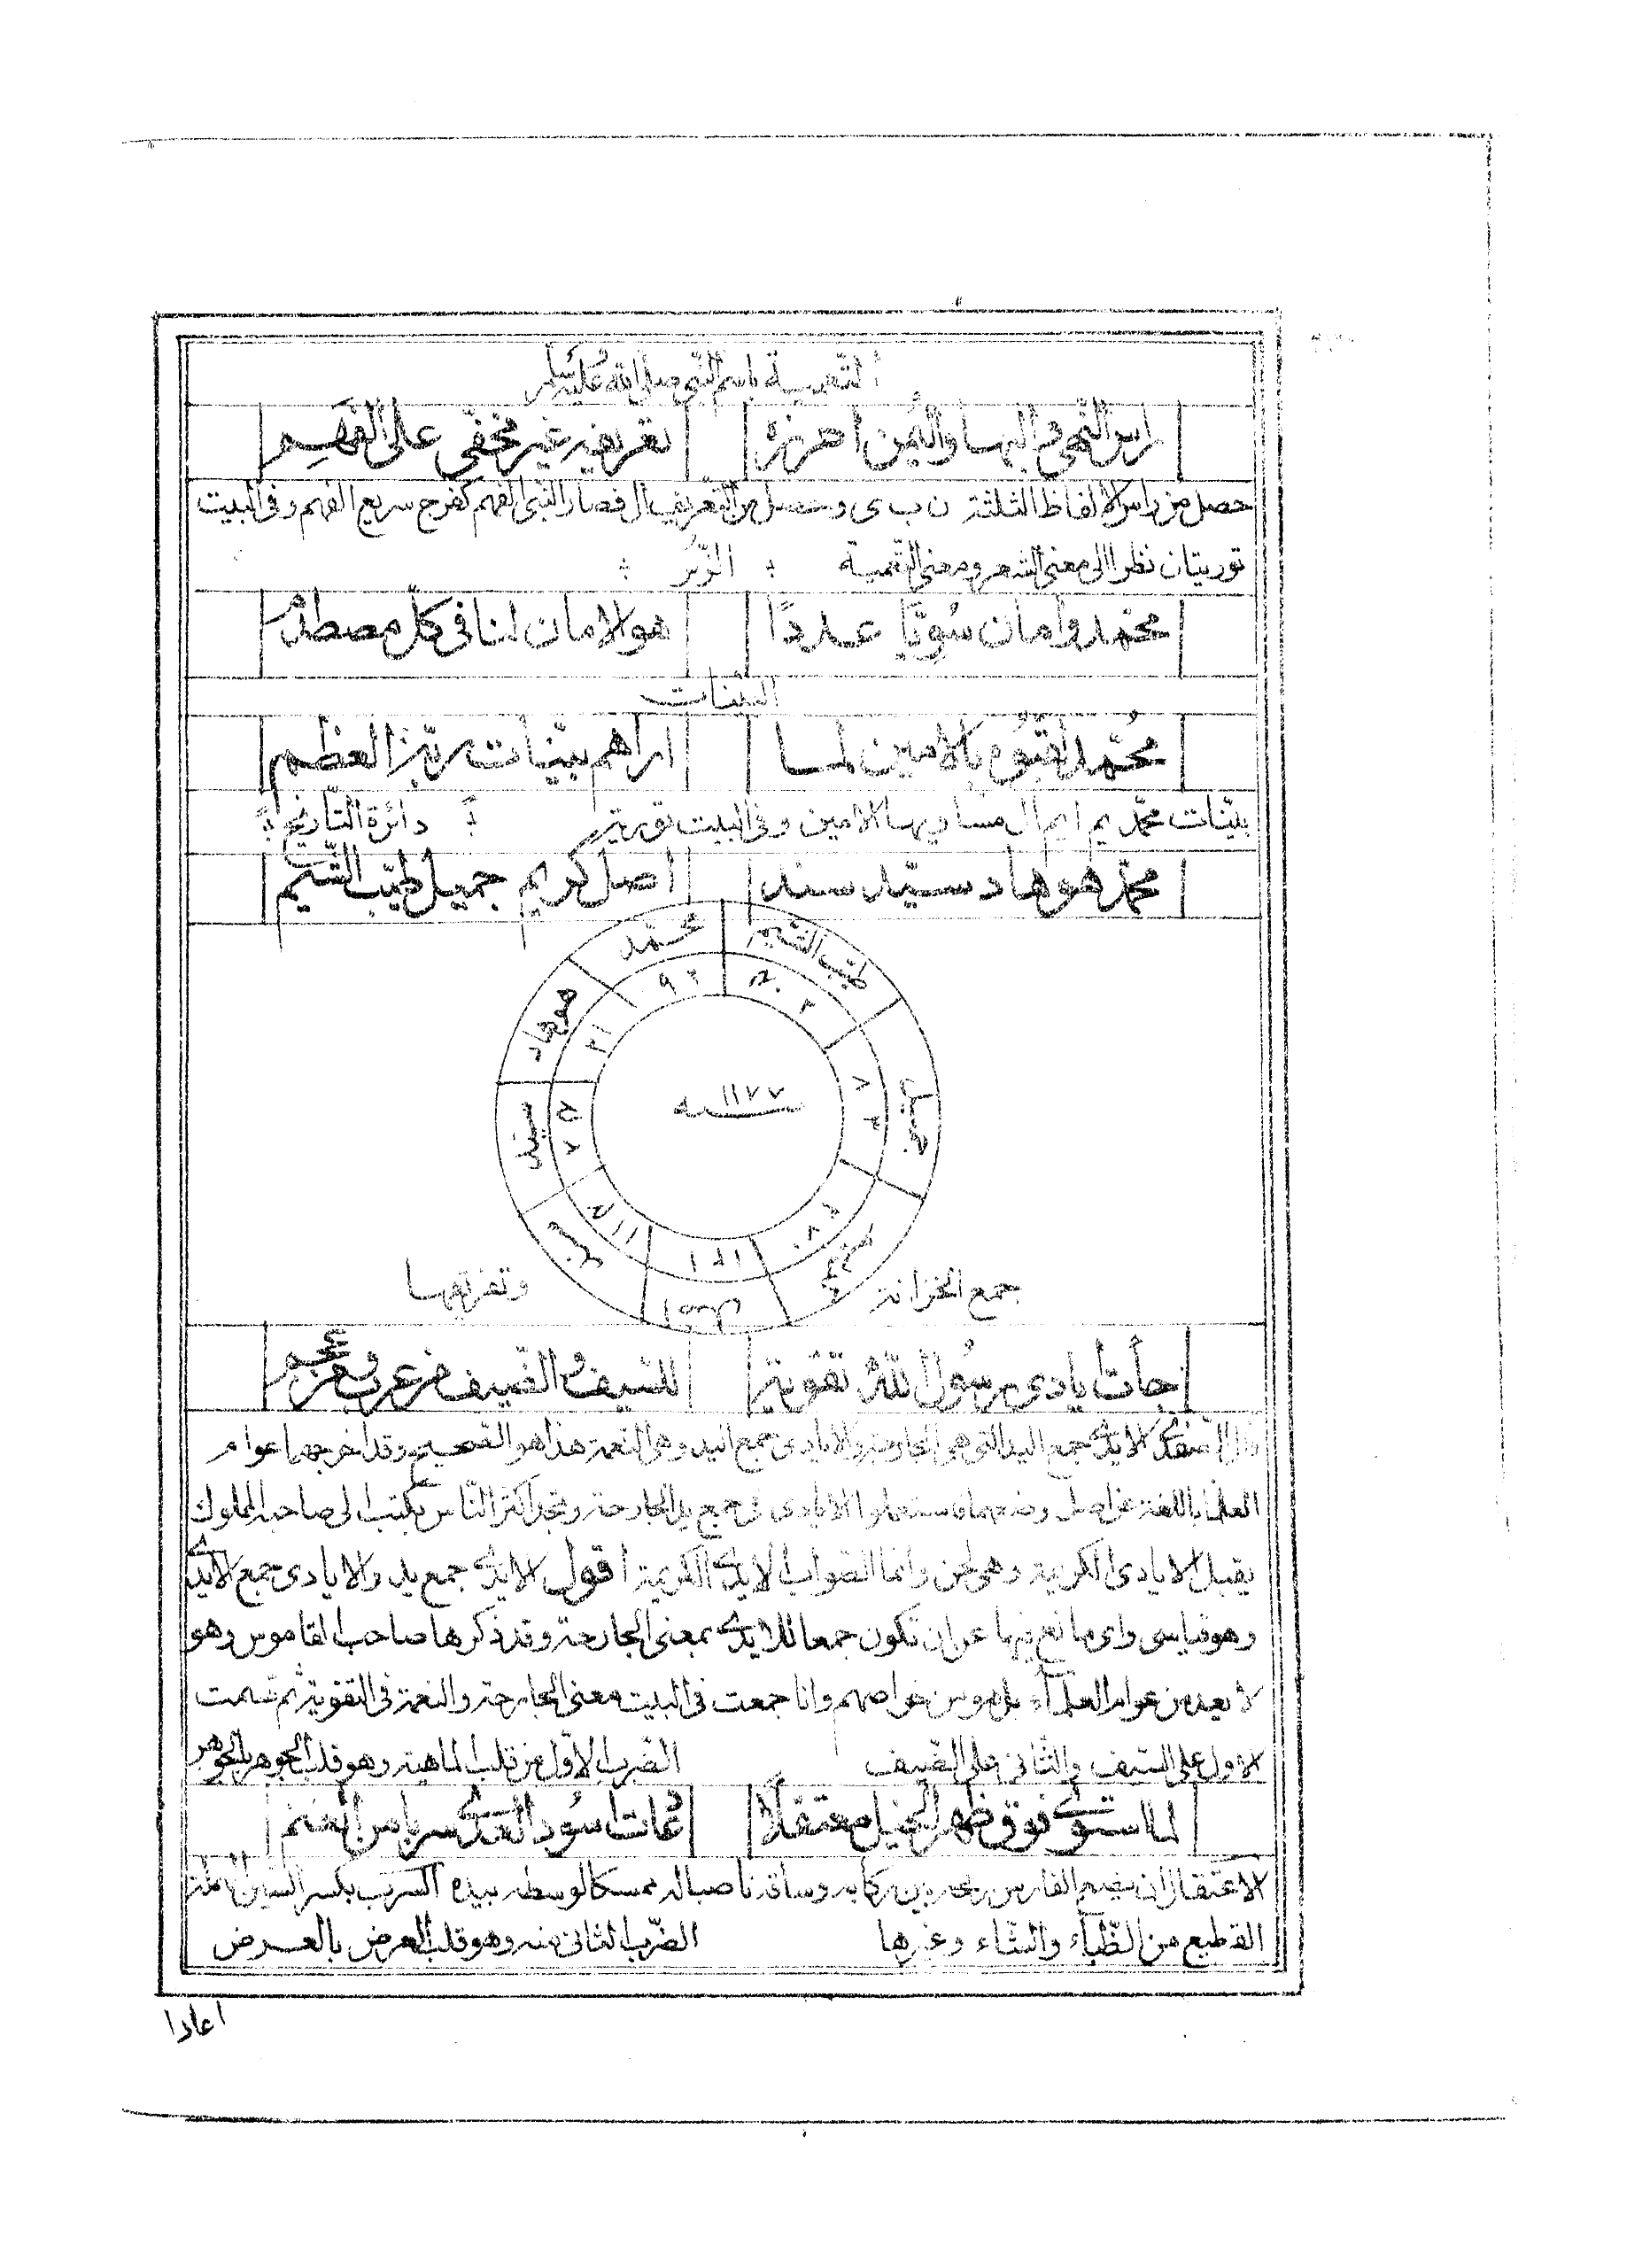 التعمية باسم النبي صلى الله عليه وسلم
راس النهى في البها واليمن احرزه تعريفه غير مخفي على الفهم
حصل من راس الالفاظ الثلثة ن ب ى وحصل من التعريف ال فصار النبي الفهم كفرح سريع الفهم وفي البيت
توريتان نظرا الى معنى الشعر ومعنى التعمية الزبر
محمد وامان سويا عددا هو الامان لنا في كل مصطدم
البينات
محمد لقبوه بالامين لما اراهم بينات زبر العظم
بينات محمد يم ا يم ال مساويها الامين وفي البيت تورية دائرة التاريخ
محمد هو هاد سيد سند اصل كريم جميل طيب الشيم
محمد طيب الشيم
هو هاد جميل
سيد
سند اصل كريم
٩٢
٢١
٧٤
١١٤
١٢١
٨٣
سنه ١١٧٧
جمع الخزانة وتفريقها
جأت ايادى رسول الله تقوية للسيف والضيف من عرب ومن عجم
قال الصفدى الايدى جمع اليد التي هي الجارحة والايادى جمع اليد وهي النعمة هذا هو الفصيح وقد اخرجهما عوام
العلماء باللغة عن اصل وضعهما فاستعملوا الايادى في جمع يد الجارحة وتجد اكثر الناس يكتب الى صاحبه المملوك
يقبل الايادى الكريمة وهي لحن وانما الصواب الايدى الكريمة اقول الايدى جمع يد والايادى جمع الايدى
وهو قياسي واى مانع فيها عن ان تكون جمعا للايدى بمعنى الجارحة وقد ذكرها صاحب القاموس وهو
لا يعد من عوام العلماء بل هو من خواصهم وانا جمعت في البيت معنى الجارحة والنعمة في التقوية ثم قسمت
الاول على السيف والثاني على الضيف الضرب الاول من قلب الماهية وهو قلب الجوهر بالجوهر
لما استوى فوق ظهر الخيل معتقلا اسود العدى سربا من الغنم
الاعتقال ان يضع الفارس رمحه بين ركابه وساقه ناصبا له ممسكا لوسطه بيده السرب بكسر السين
القطيع من الظباء والشاء وغيرها الضرب الثاني منه وهو قلب العرض بالعرض
اعادا